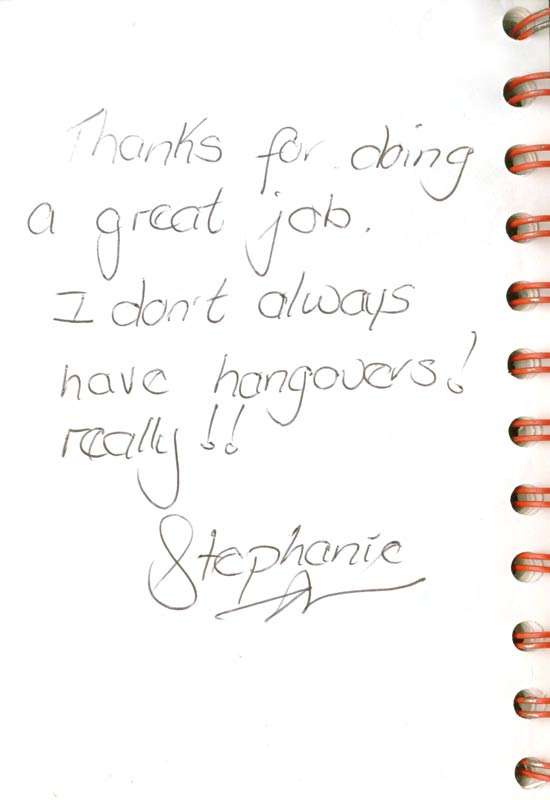 Thanks for doing
a great job.
I don't always
have hangovers!
really!!
Stephanie